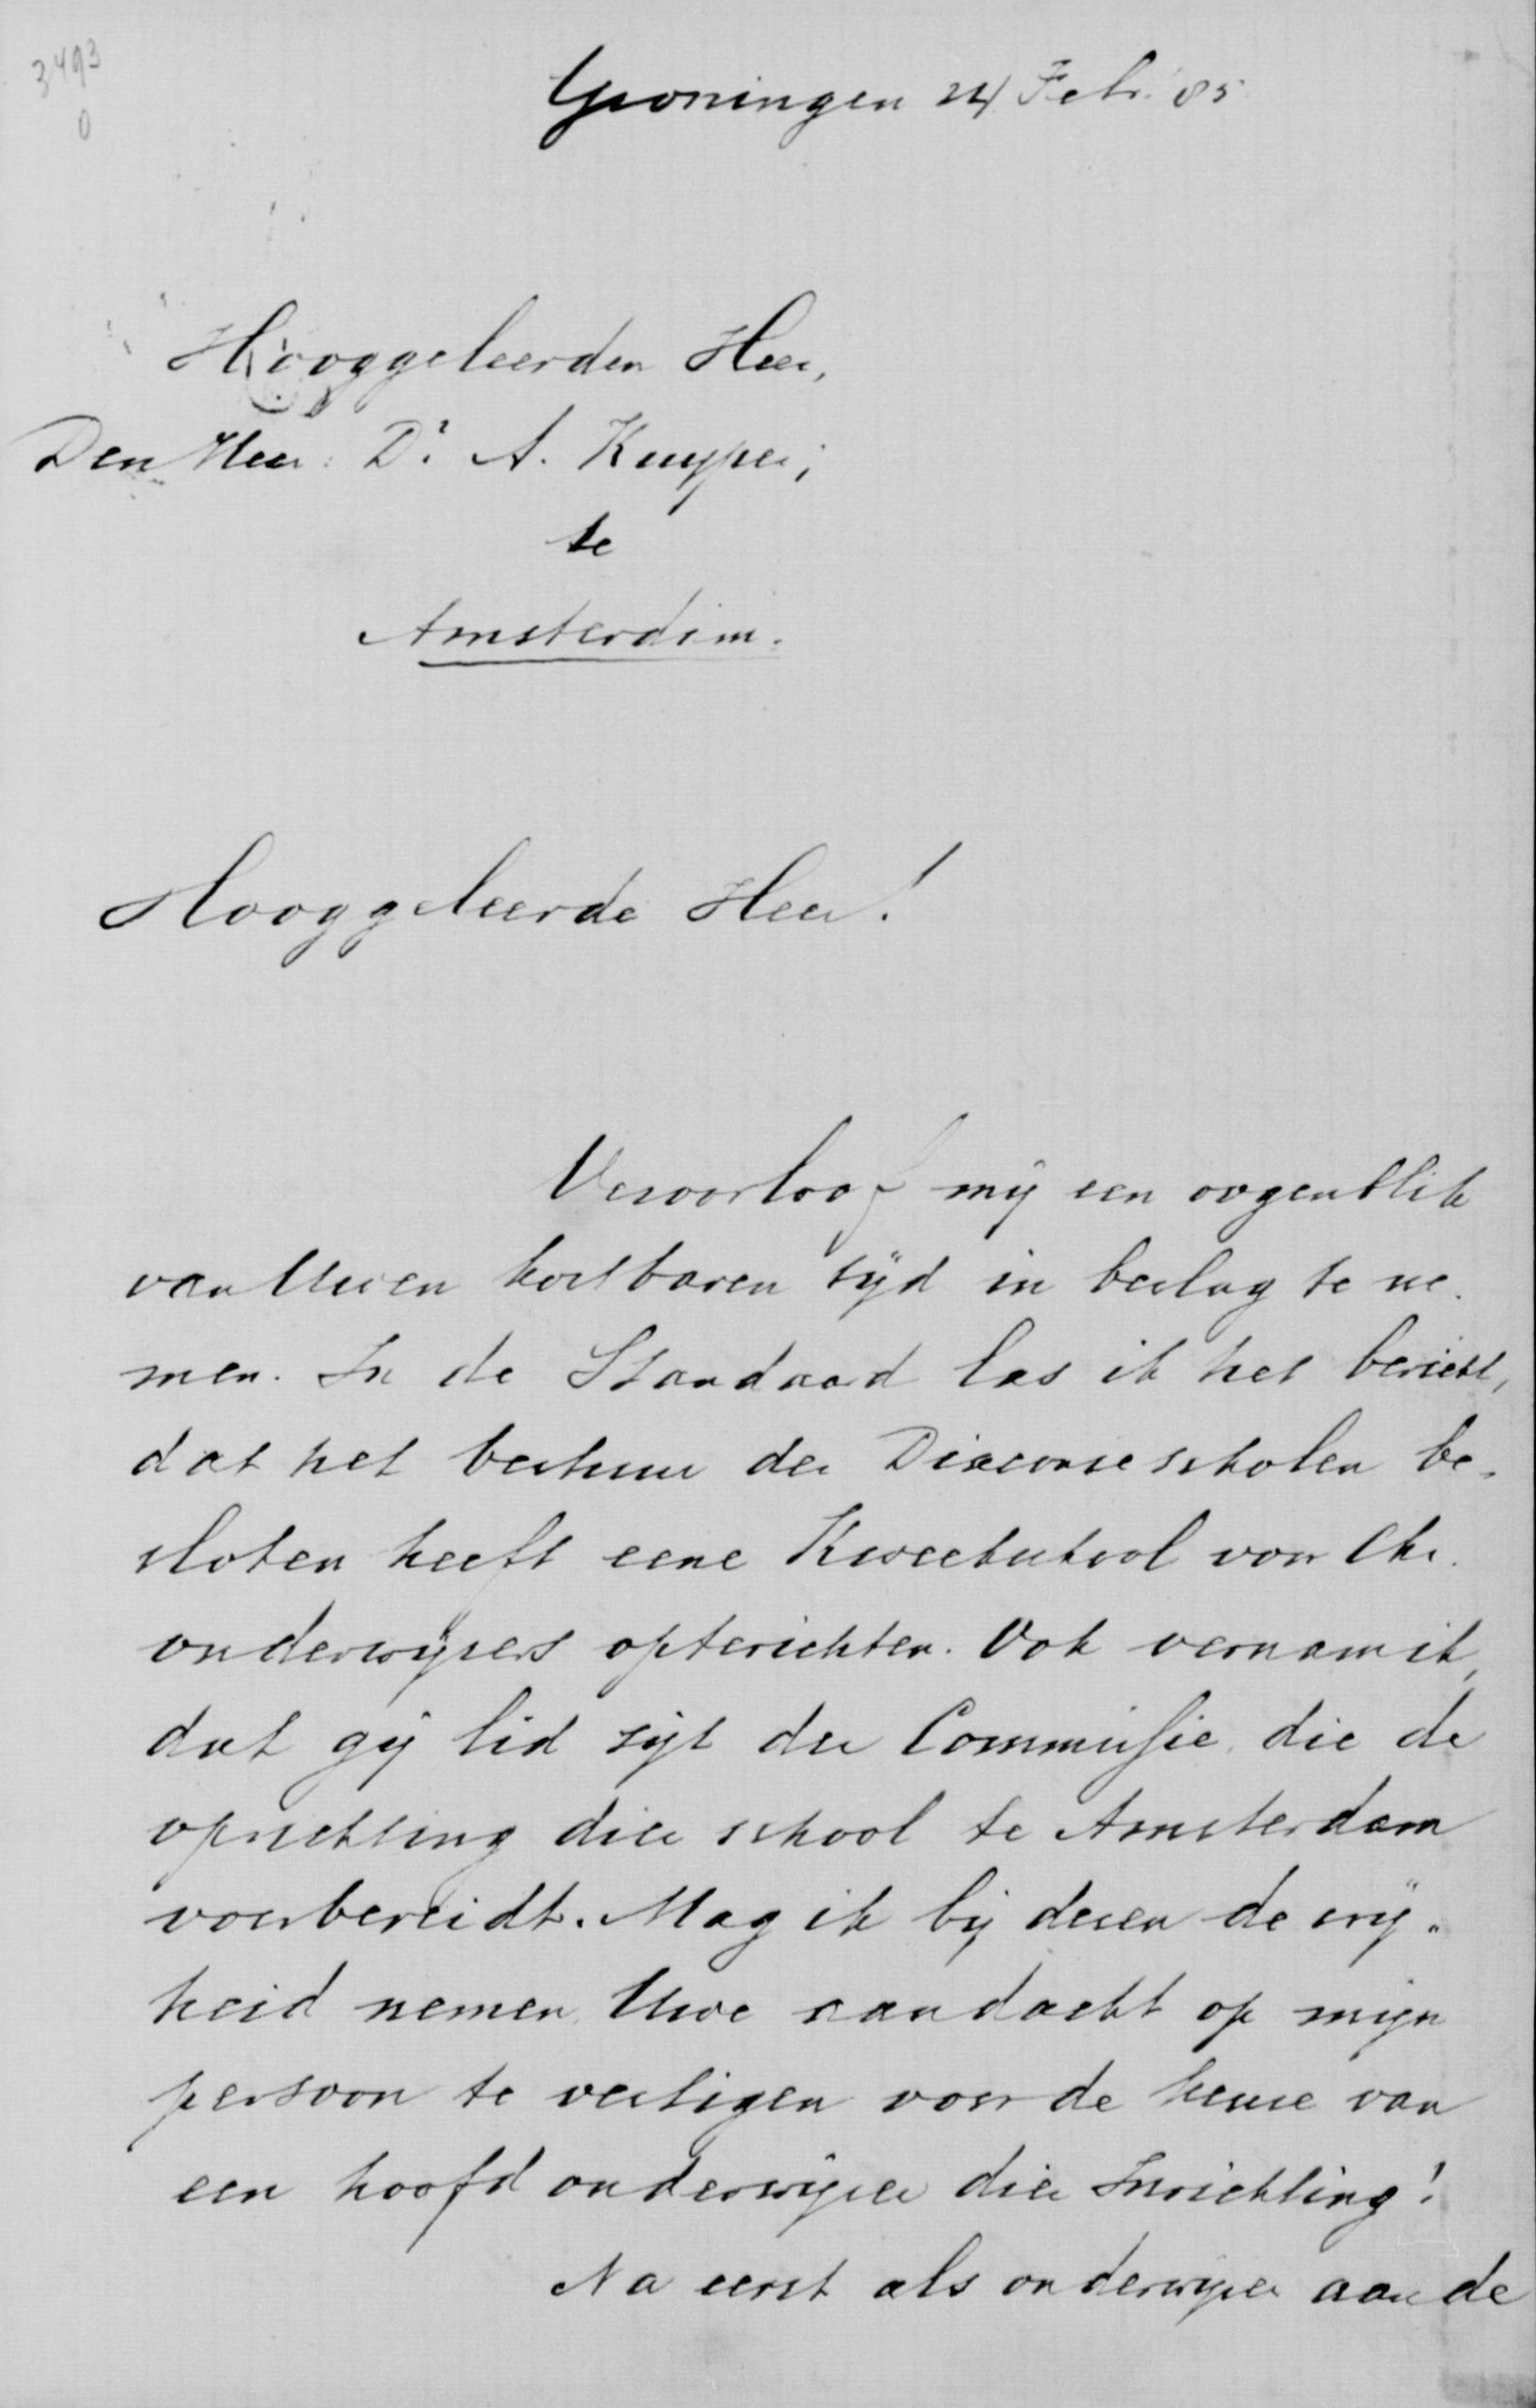 3493
0
Groningen 24 Febr. 85
Hooggeleerden Heer,
Den Heer: Dr. A. Kuyper;
te
Amsterdam.
Hooggeleerde Heer!
Veroorloof mij een oogenblik
van Uwen kostbaren tijd in beslag te ne-
men. In de Standaard las ik het bericht,
dat het bestuur der Diaconiescholen be-
sloten heeft eene Kweekschool voor Chr.
onderwijzers opterichten. Ook vernam ik,
dat gij lid zijt der Commissie, die de
oprichting dier school te Amsterdam
voorbereidt. Mag ik bij dezen de vrij-
heid nemen, Uwe aandacht op mijn
persoon te vestigen voor de keuze van
een hoofdonderwijzer dier Inrichting!
Na eerst als onderwijzer aan de